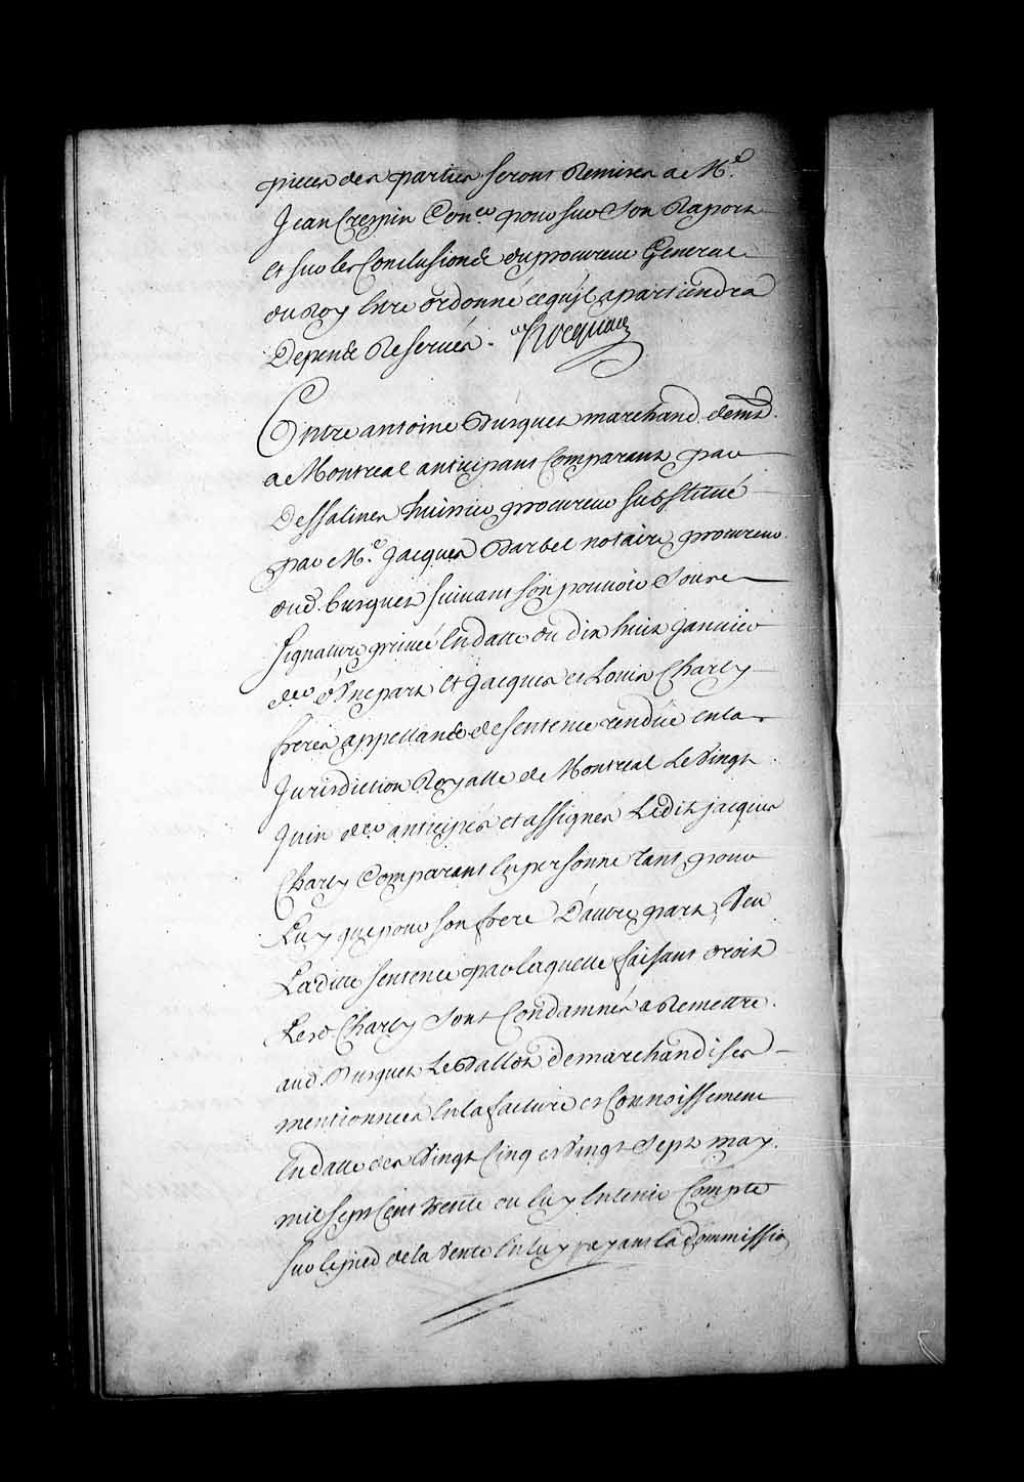 pieces des parties seront Remises a Me.
Jean Crespin Coner pour sur Son Raport
et sur les Conclusions du procureur General
du Roy Estre ordonné ce quil apartiendra
Depens Reservés. Hocquart
Entre antoine Pusques marchand demt.
a Montreal anticipant Comparant par
Dessalines huissier procureur substitué
par Me. Jacques Barbel notaire, procureur
dud. busques suivant son pouvoir Sous
signature privée En datte du dix huit janvier
der. d'Une part Et Jacques et Louis Charly
freres appellants de sentence rendüe en la
Jurisdiction Royalle de Montreal Le Vingt
Juin der anticipés et assignés Ledit jacques
Charly Comparant En personne tant pour
Luy que pour son frere D'autre part, Veu
Laditte sentence par laquelle faisant droit
Lesd. Charly Sont Condamnés a Remettre
aud. Pusques Le Ballot de marchandises
mentionnées En la facture et Connoissement
En datte des Vingt Cinq et Vingt Sept may
mil sept Cent trente ou luy en tenir Compte
sur le pied de la Vente En luy payant la Commissio